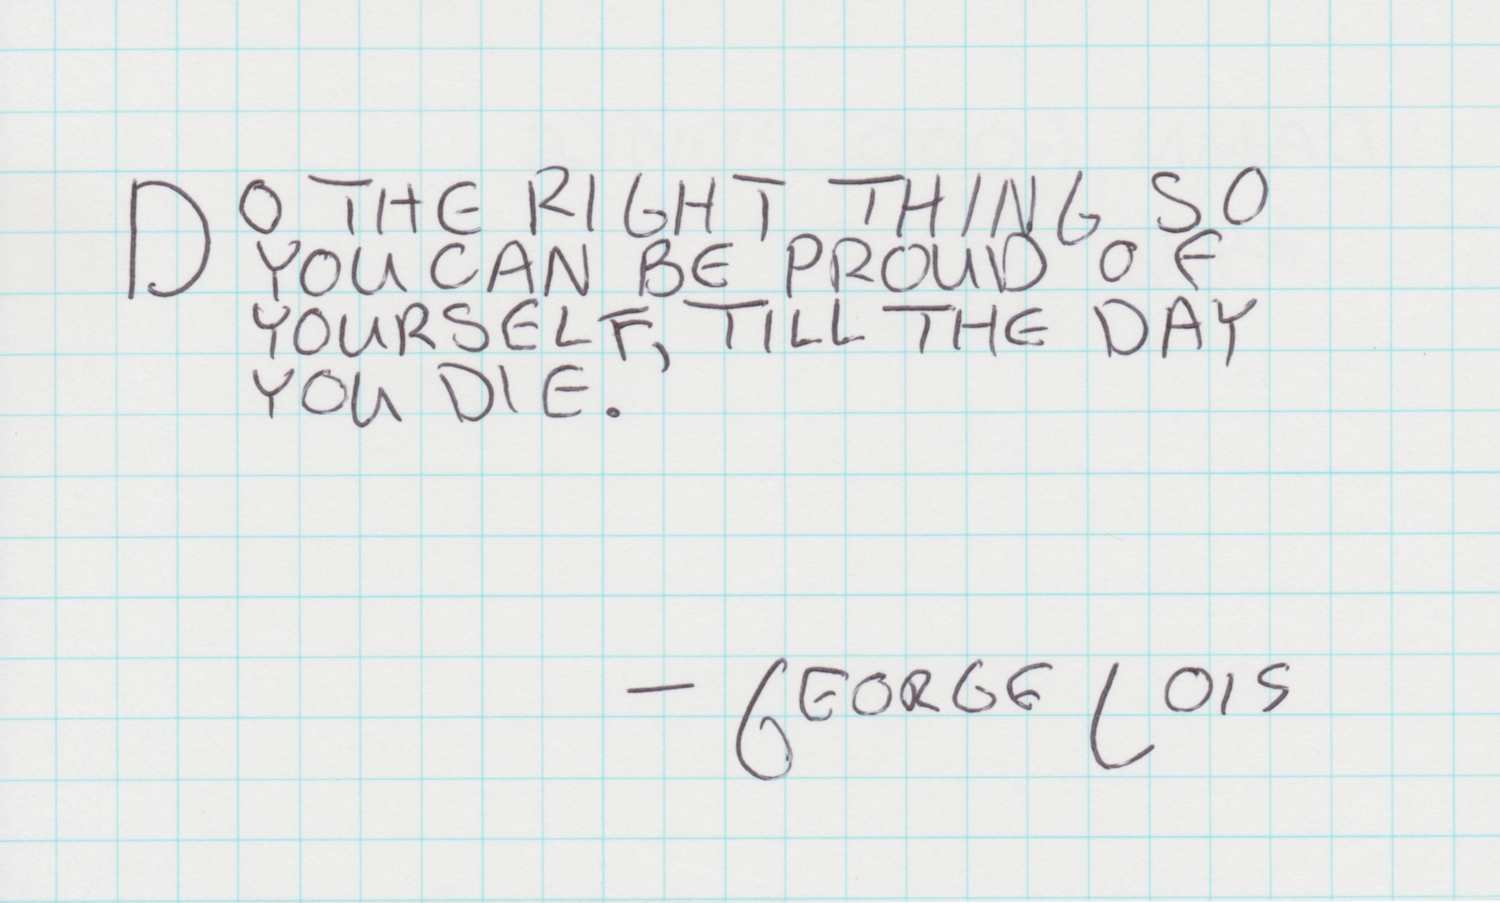 DO THE RIGHT THING SO
YOU CAN BE PROUD OF
YOURSELF, TILL THE DAY
YOU DIE.
— GEORGE LOIS